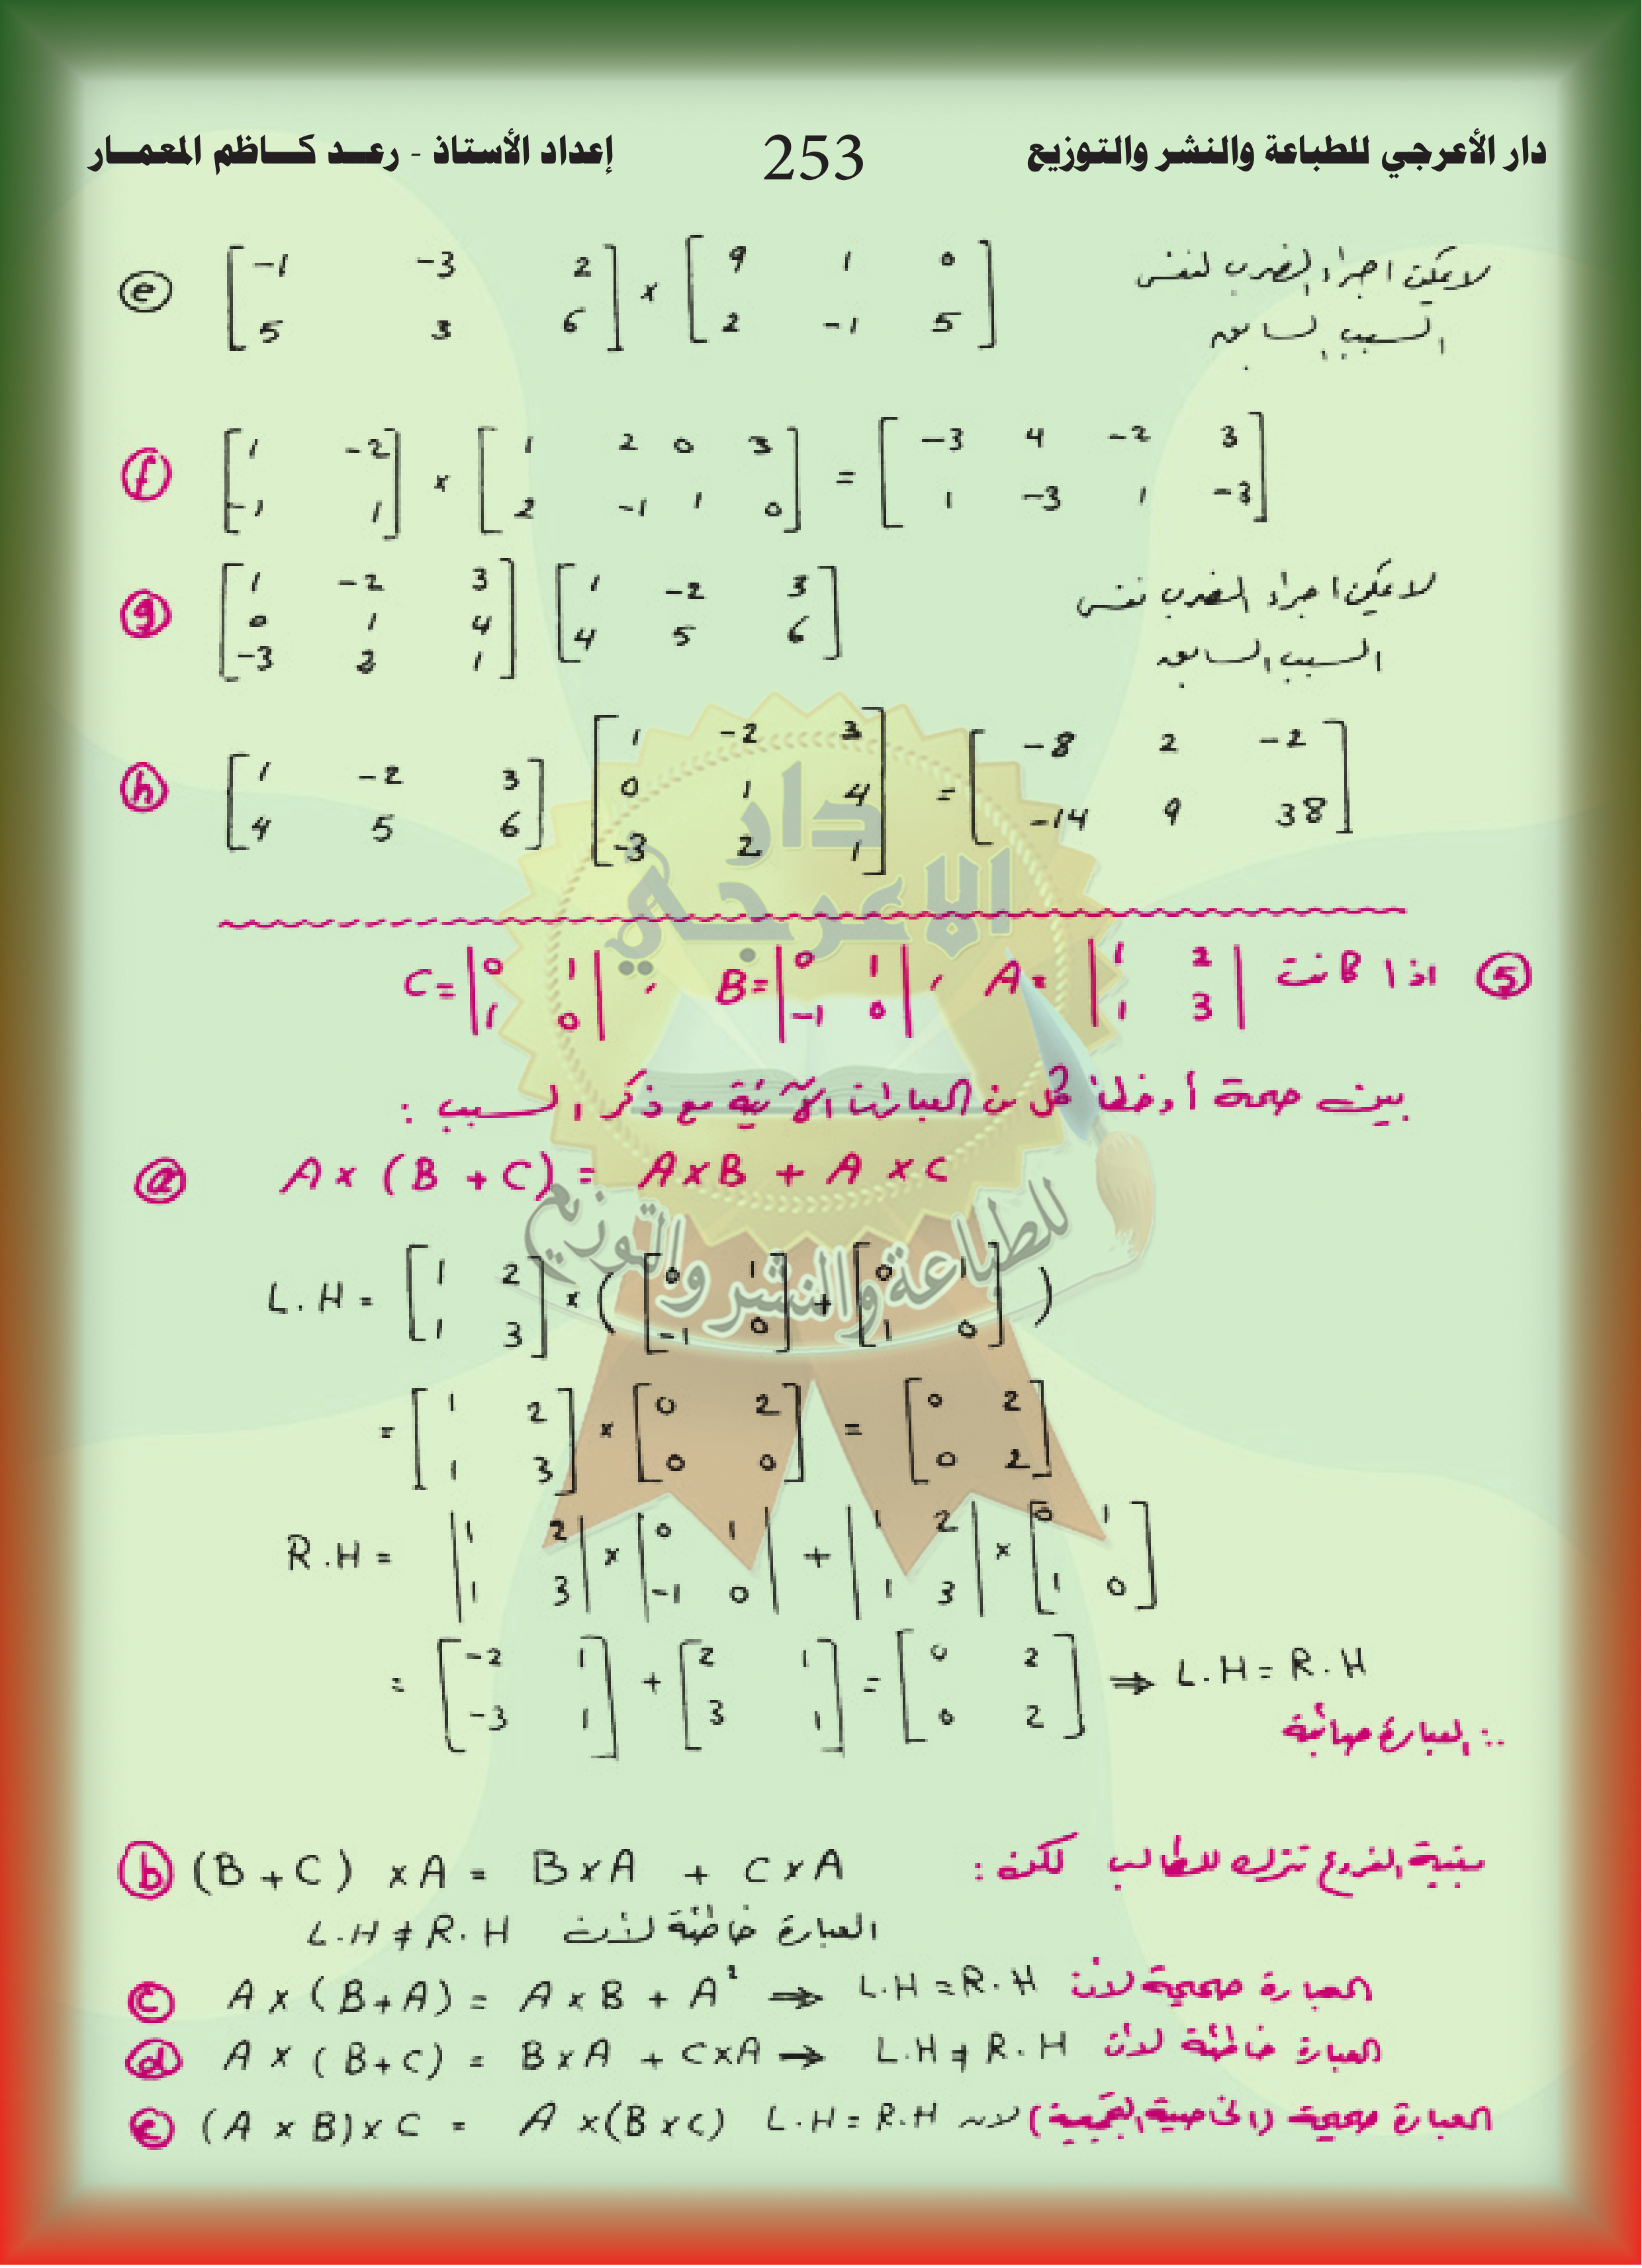 دار الأعرجي للطباعة والنشر والتوزيع 253 إعداد الأستاذ - رعد كاظم المعمار
ⓔ [-1 -3 2 ; 5 3 6] × [9 1 0 ; 2 -1 5] لا يمكن اجراء الضرب لنفس
السبب السابق
ⓕ [1 -2 ; -1 1] × [1 2 0 3 ; 2 -1 1 0] = [-3 4 -2 3 ; 1 -3 1 -3]
ⓖ [1 -2 3 ; 0 1 4 ; -3 2 1] [1 -2 3 ; 4 5 6] لا يمكن اجراء الضرب نفس
السبب السابق
ⓗ [1 -2 3 ; 4 5 6] [1 -2 3 ; 0 1 4 ; -3 2 1] = [-8 2 -2 ; -14 9 38]
دار
الاعرجي
⑤ اذا كانت A = |1 2 ; 1 3| , B = |0 1 ; -1 0| , C = |0 1 ; 1 0|
بين صحة أو خطأ كل من العبارات الآتية مع ذكر السبب :
ⓐ A × (B + C) = A×B + A × C
للطباعة والنشر والتوزيع
L.H = [1 2 ; 1 3] × ( [0 1 ; -1 0] + [0 1 ; 1 0] )
= [1 2 ; 1 3] × [0 2 ; 0 0] = [0 2 ; 0 2]
R.H = |1 2 ; 1 3| × |0 1 ; -1 0| + |1 2 ; 1 3| × [0 1 ; 1 0]
= [-2 1 ; -3 1] + [2 1 ; 3 1] = [0 2 ; 0 2] ⇒ L.H = R.H
∴ العبارة صائبة
ⓑ (B + C) × A = B×A + C×A بقية الفروع تترك للطالب لكن :
العبارة خاطئة لأن L.H ≠ R.H
ⓒ A × (B+A) = A × B + A² ⇒ L.H = R.H العبارة صحيحة لان
ⓓ A × (B+C) = B×A + C×A → L.H ≠ R.H العبارة خاطئة لأن
ⓔ (A × B)× C = A ×(B×C) L.H = R.H العبارة صحيحة (الخاصية التجميعية) لان